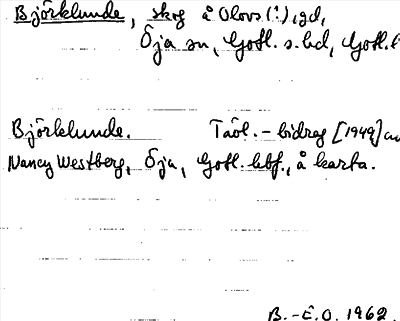 Björklunde, skog å Olovs (!) gd,
Öja sn, Gotl. s. hd, Gotl. l
Björklunde. Tävl.-bidrag [1949] av
Nancy Westberg, Öja, Gotl. hbf., å karta.
B.-E.O. 1962.